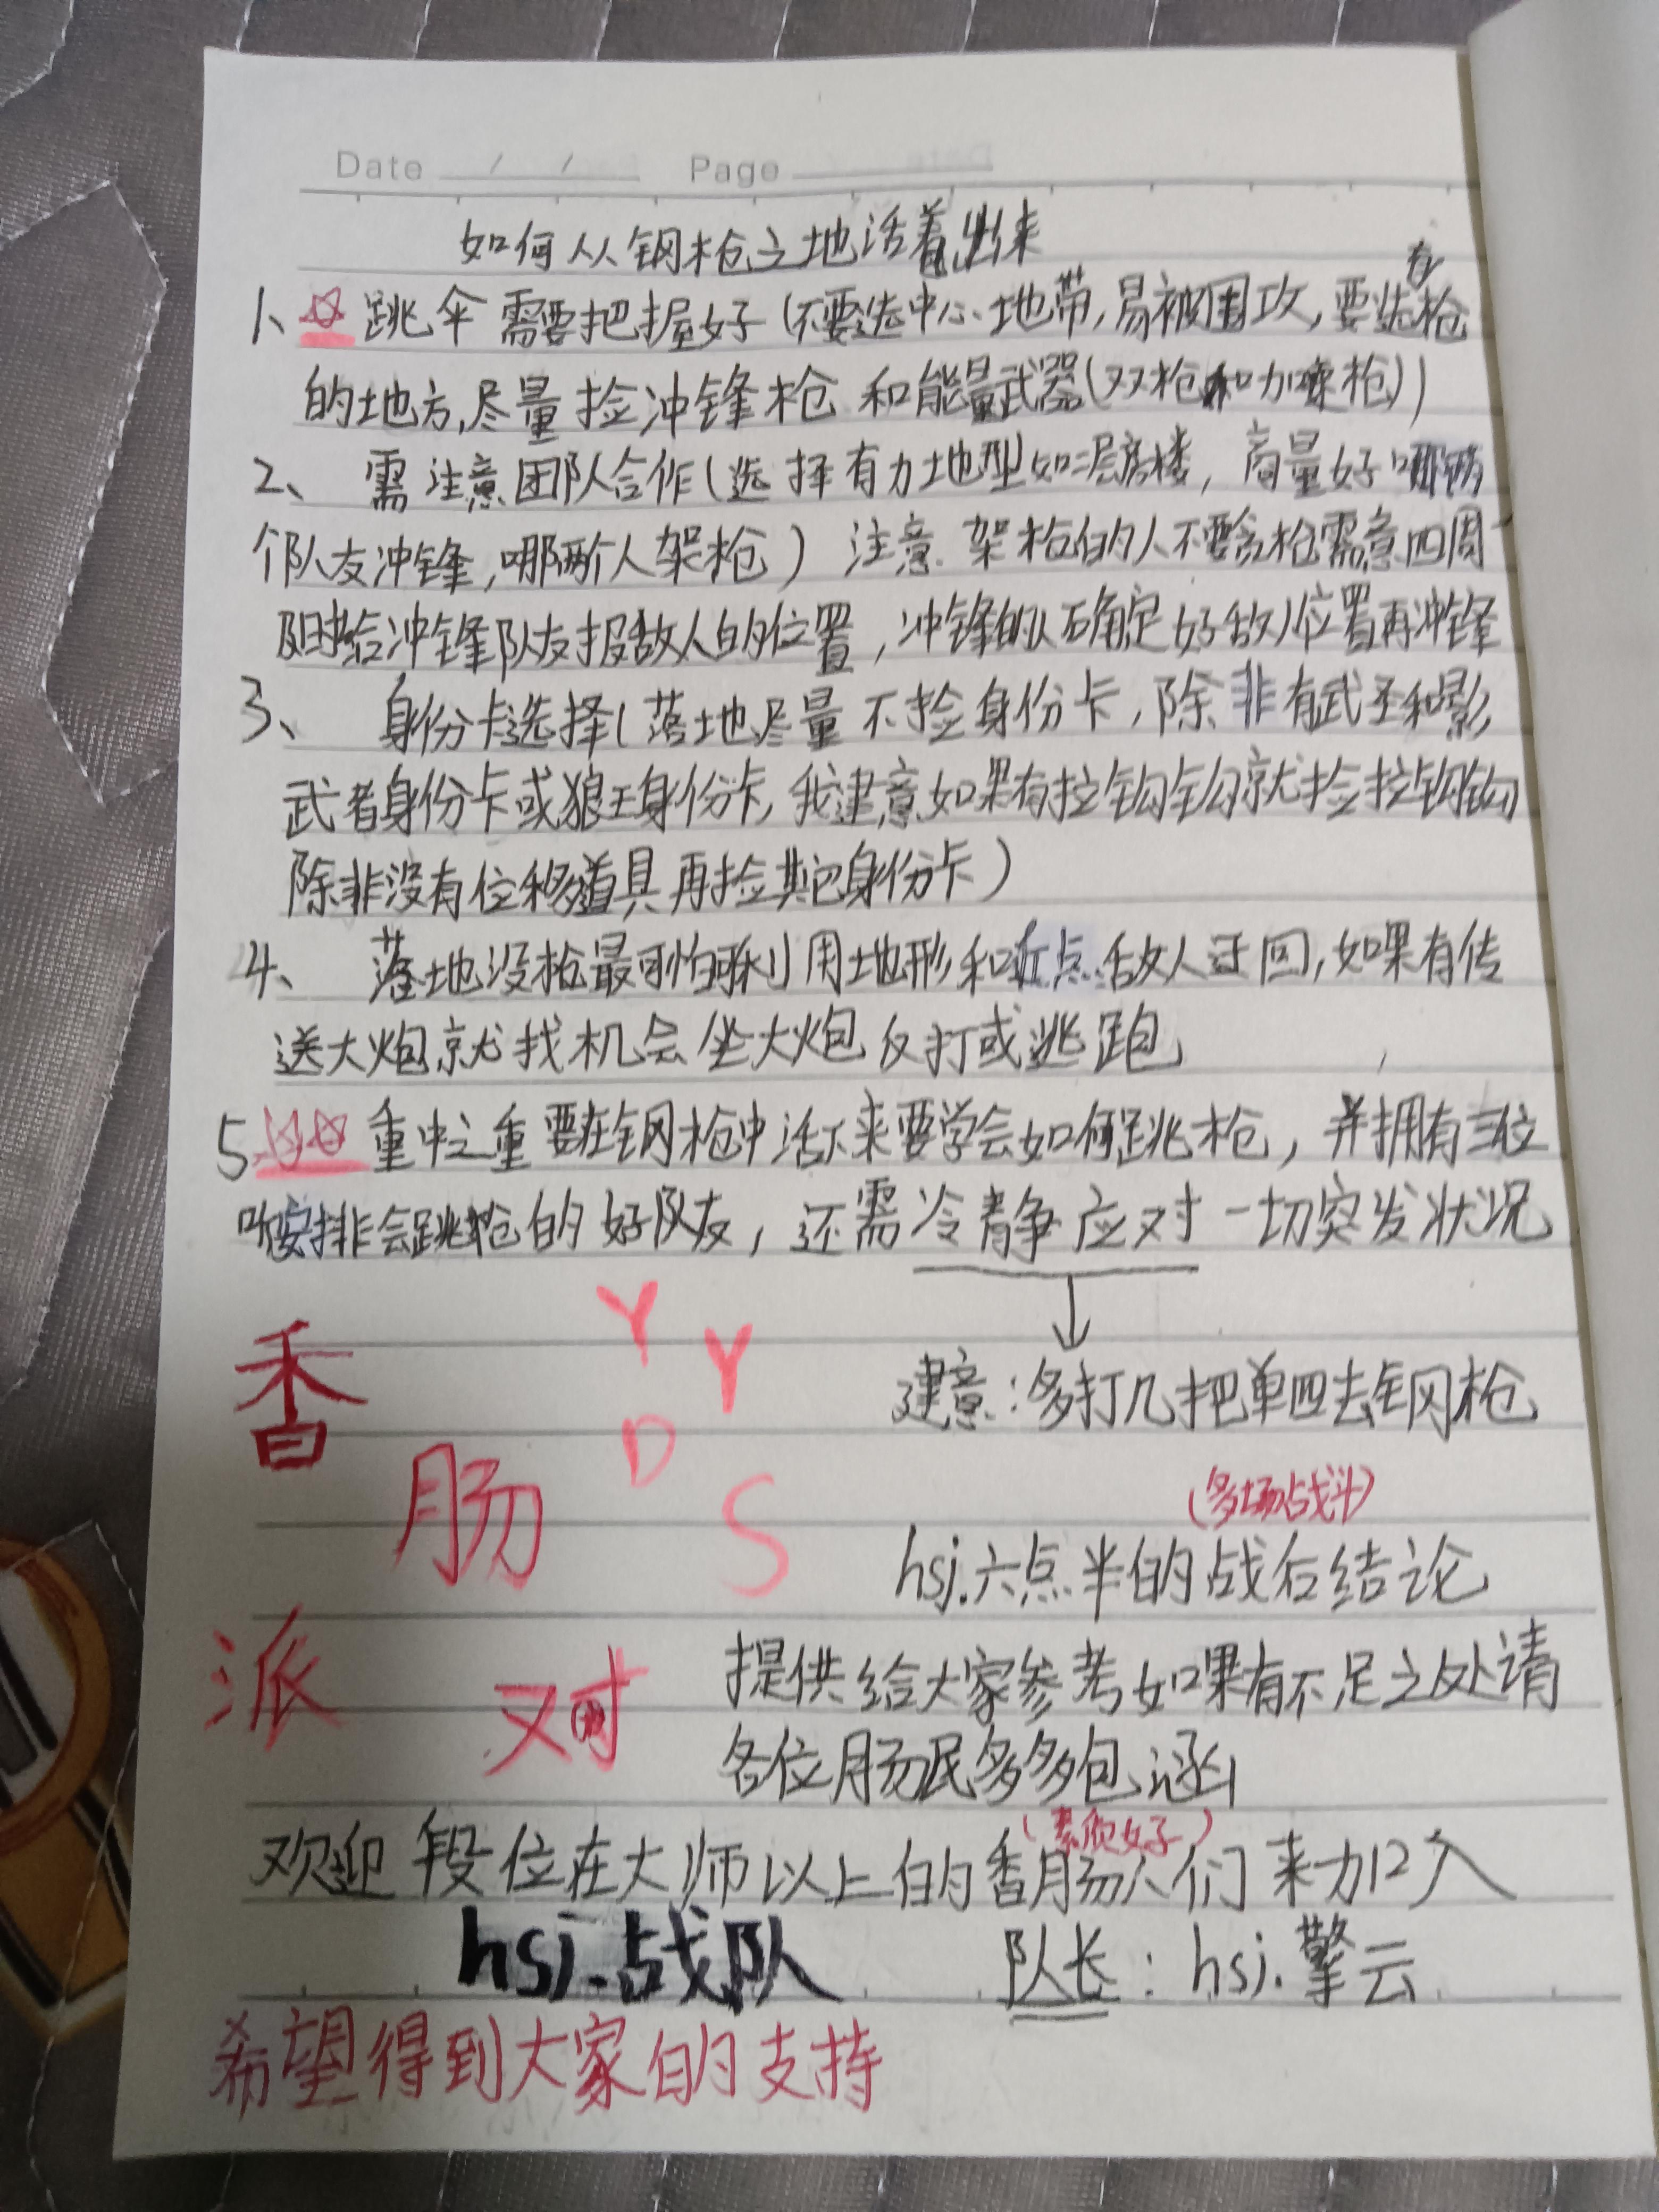 Date / / Page
如何从钢枪之地活着出来
1、跳伞需要把握好(不要选中心地带,易被围攻,要选有枪
的地方,尽量捡冲锋枪和能量武器(双枪和加速枪))
2、需注意团队合作(选择有力地型如二层房楼,商量好哪两
个队友冲锋,哪两个人架枪)注意.架枪的人不要贪枪需意四周
及时给冲锋队友报敌人的位置,冲锋的人确定好敌人位置再冲锋
3、身份卡选择(落地尽量不捡身份卡,除非有武圣和影
武者身份卡或狼王身份卡,我建意如果有拉钩钩就捡拉钩钩
除非没有位移道具再捡其它身份卡)
4、落地没枪最可怕利用地形和近点敌人迂回,如果有传
送大炮就找机会坐大炮反打或逃跑
5、重中之重要在钢枪中活下来要学会如何跳枪,并拥有三位
听安排会跳枪的好队友,还需冷静应对一切突发状况
建意:多打几把单四去钢枪
香肠派对
YYDS
(多场战斗)
hsj.六点半的战后结论
提供给大家参考如果有不足之处请
各位肠民多多包涵
(素质好)
欢迎段位在大师以上的香肠人们来加入
hsj.战队 队长:hsj.擎云
希望得到大家的支持